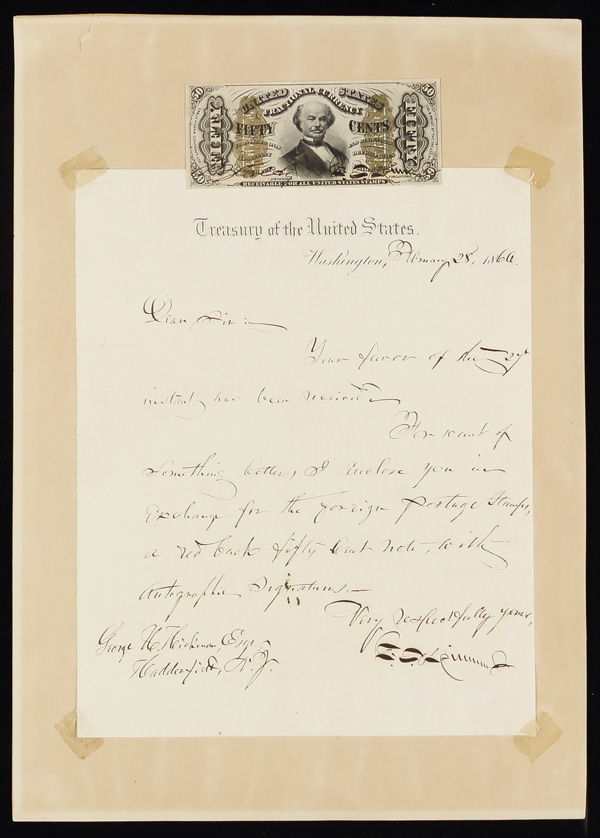 50 UNITED STATES 50
FRACTIONAL CURRENCY
FIFTY FIFTY CENTS FIFTY
RECEIVABLE FOR ALL UNITED STATES STAMPS
50 50
Treasury of the United States.
Washington, February 28, 1866.
Dear Sir :
Your favor of the 27
instant, has been received.
For want of
something better, I enclose you in
exchange for the foreign postage Stamps,
a red back fifty Cent note, with
Autographic Signatures.
Very respectfully yours,
George H. Hickman, Esq.
Haddonfield, N. J.